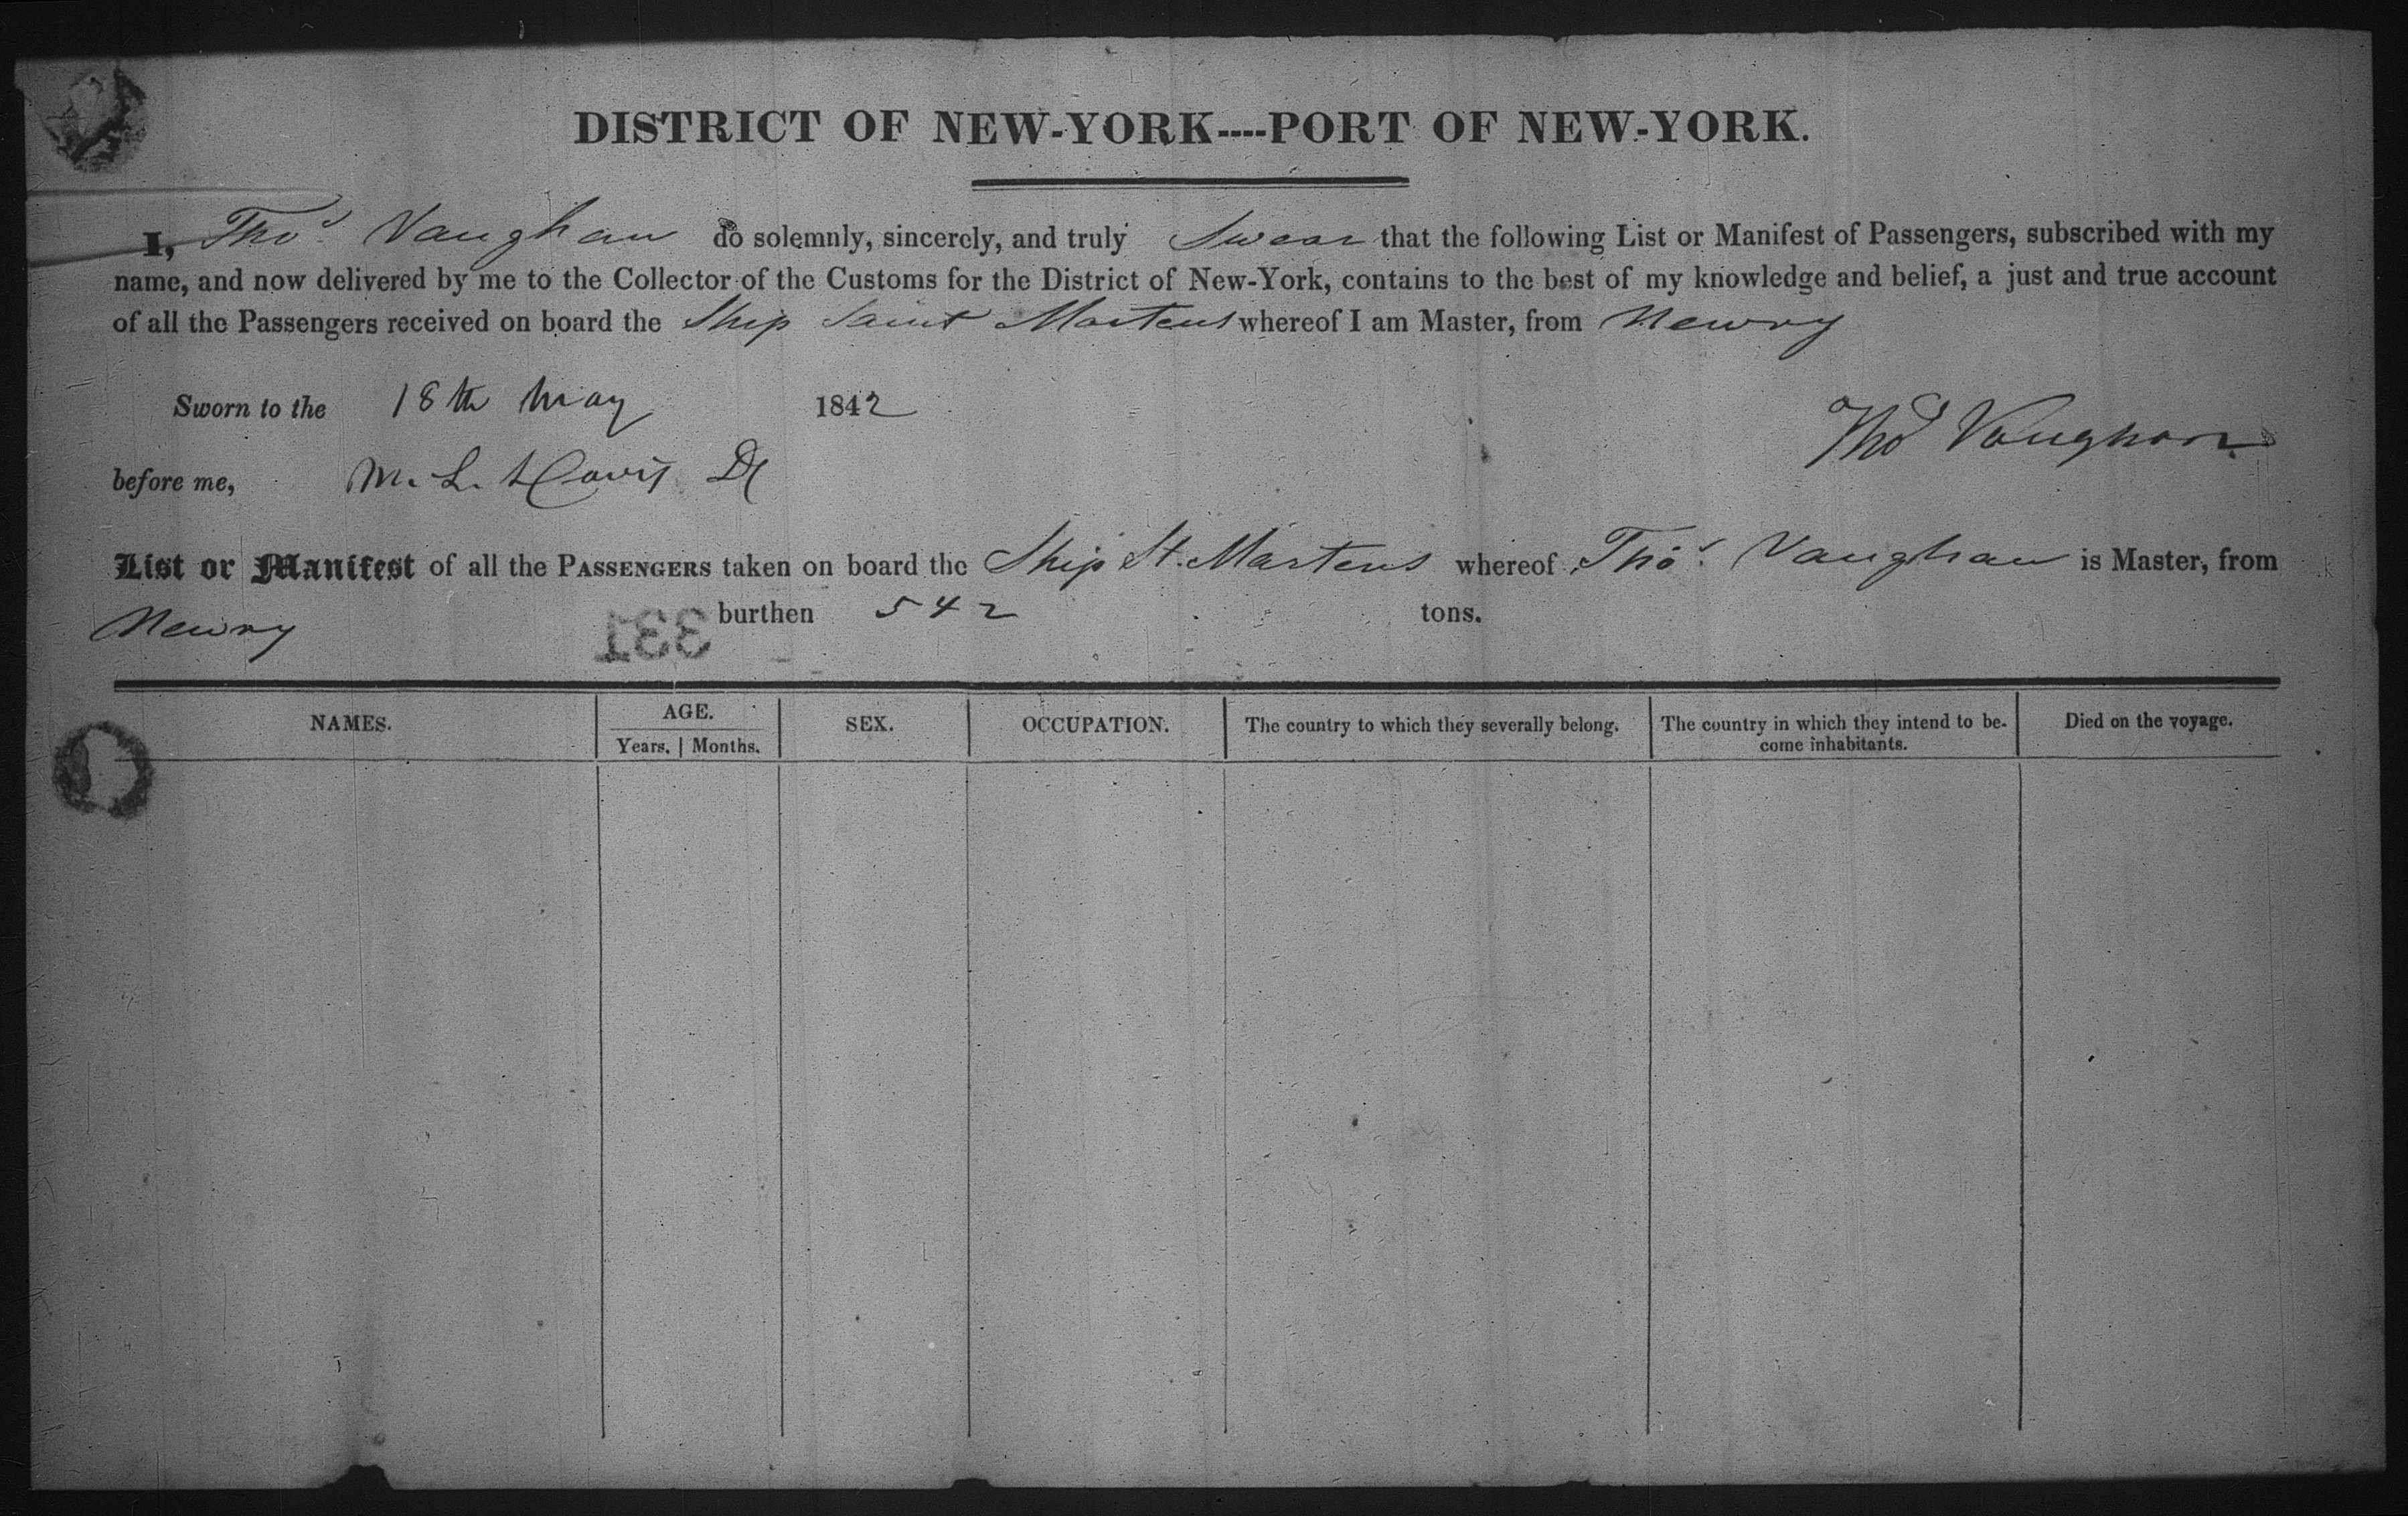 DISTRICT OF NEW-YORK----PORT OF NEW-YORK.
I, Thos. Vaughan do solemnly, sincerely, and truly Swear that the following List or Manifest of Passengers, subscribed with my
name, and now delivered by me to the Collector of the Customs for the District of New-York, contains to the best of my knowledge and belief, a just and true account
of all the Passengers received on board the Ship Saint Martens whereof I am Master, from Newry
Sworn to the 18th May 1842
Thos Vaughan
before me, M. L. Davis
List or Manifest of all the PASSENGERS taken on board the Ship St. Martens whereof Thos. Vaughan is Master, from
Newry burthen 542 tons.
331
NAMES. AGE. SEX. OCCUPATION. The country to which they severally belong. The country in which they intend to be- Died on the voyage.
Years. Months. come inhabitants.